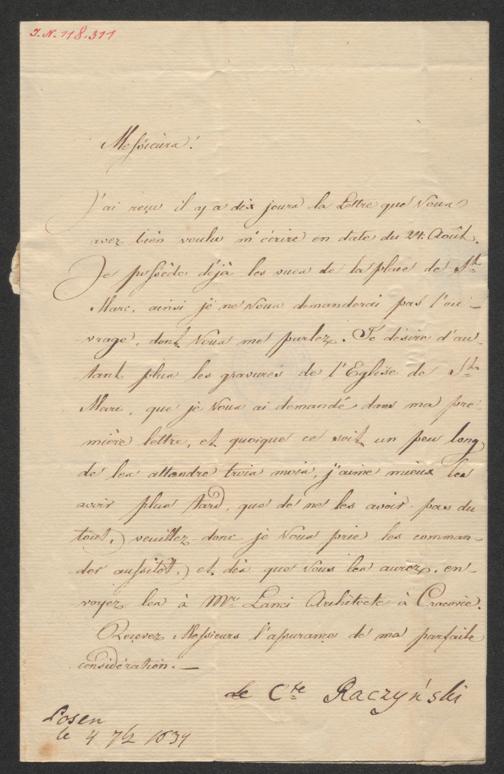 I.N. 118.311
Messieurs!
J'ai reçu il y a dix jours la Lettre que Vous
avez bien voulu m'écrire en date du 24. Août.
Je possède déjà les vues de la place de St.
Marc, ainsi je ne Vous demanderai pas l'ou-
vrage, dont Vous me parlez. Je désire d'au-
tant plus les gravures de l'Eglise de St.
Marc, que je Vous ai demandé dans ma pre-
mière lettre, et quoique ce soit un peu long
de les attendre trois mois, j'aime mieux les
avoir plus tard, que de ne les avoir pas du
tout,) veuillez donc je Vous prie les comman-
der aussitôt,) et dès que Vous les aurez, en-
voyez les à Mr. Lanci Architecte à Cracovie.
Recevez Messieurs l'assurance de ma parfaite
considération. —
le Cte Raczyński
Posen
le 4 7b